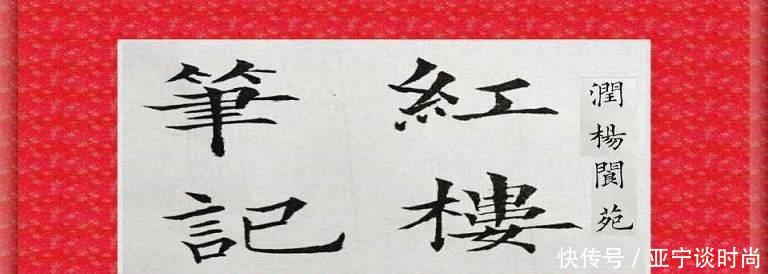 潤楊閬苑
紅樓
筆記
快传号/亚宁谈时尚